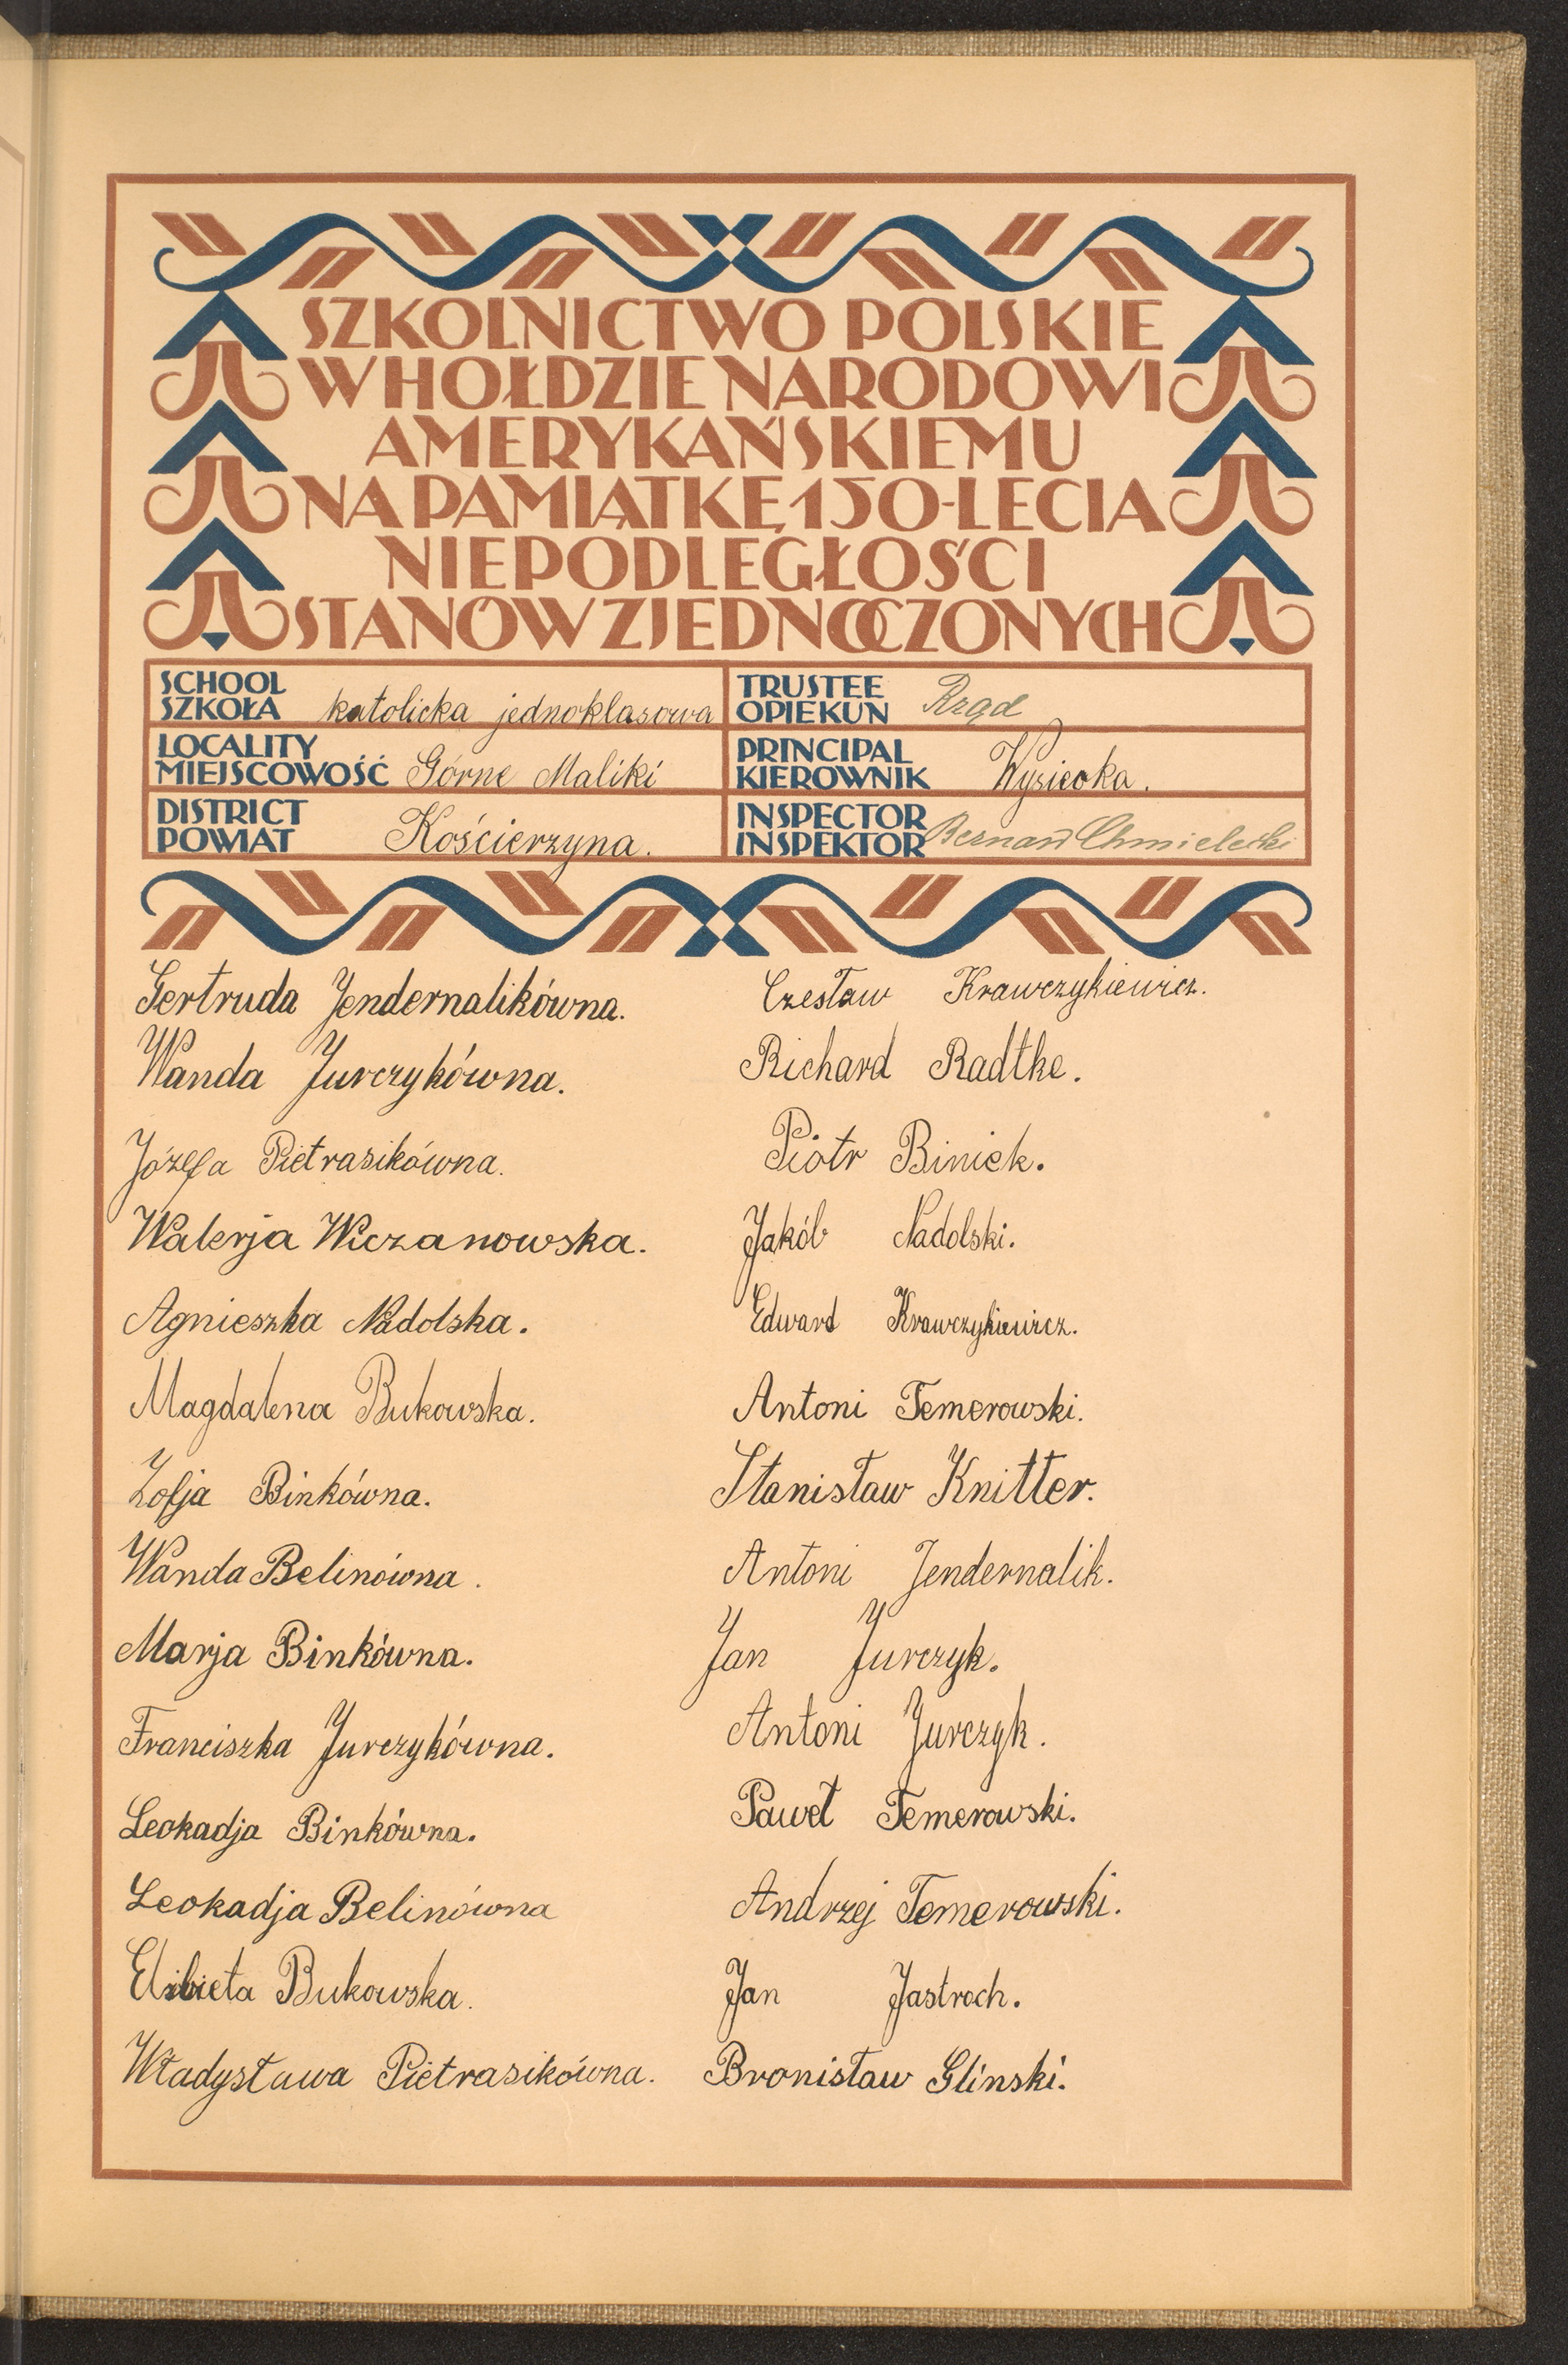 SZKOLNICTWO POLSKIE
W HOŁDZIE NARODOWI
AMERYKAŃSKIEMU
NA PAMIĄTKĘ 150-LECIA
NIEPODLEGŁOŚCI
STANÓW ZJEDNOCZONYCH
SCHOOL
SZKOŁA katolicka jednoklasowa
TRUSTEE
OPIEKUN Rząd
LOCALITY
MIEJSCOWOŚĆ Górne Maliki
PRINCIPAL
KIEROWNIK Wysiecka.
DISTRICT
POWIAT Kościerzyna.
INSPECTOR
INSPEKTOR Bernard Chmielecki
Gertruda Jendernalikówna.
Wanda Jurczykówna.
Józefa Pietrasikówna.
Walerja Wiczanowska.
Agnieszka Nadolska.
Magdalena Bukowska.
Zofja Binkówna.
Wanda Belinówna.
Marja Binkówna.
Franciszka Jurczykówna.
Leokadja Binkówna.
Leokadja Belinówna
Elzbieta Bukowska.
Władysława Pietrasikówna.
Czesław Krawczykiewicz.
Richard Radtke.
Piotr Biniek.
Jakób Nadolski.
Edward Krawczykiewicz.
Antoni Temerowski.
Stanisław Knitter.
Antoni Jendernalik.
Jan Jurczyk.
Antoni Jurczyk.
Paweł Temerowski.
Andrzej Temerowski.
Jan Jastroch.
Bronisław Glinski.